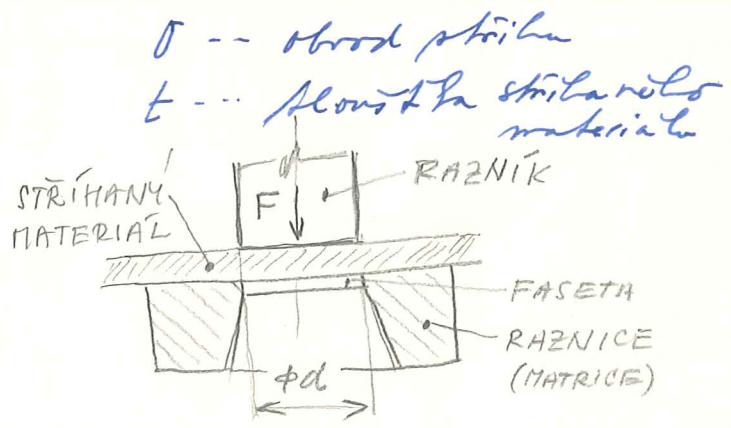 O -- obvod střihu
t --- tloušťka stříhaného
materiálu
RAZNÍK
STŘÍHANÝ
MATERIÁL
F
FASETA
RAZNICE
(MATRICE)
ϕd